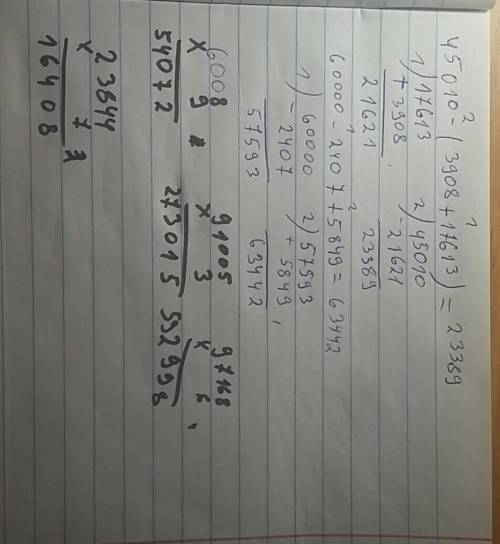 45010 - (3908 + 17613) = 23389
1) 17613 2) 45010
+ 3908 , - 21621
21621 23389
60000 - 2407 + 5849 = 63442
1) 60000 2) 57593
- 2407 + 5849,
57593 63442
6008 91005
x 9 x 3 x
54072 273015 552998
x 7
16408